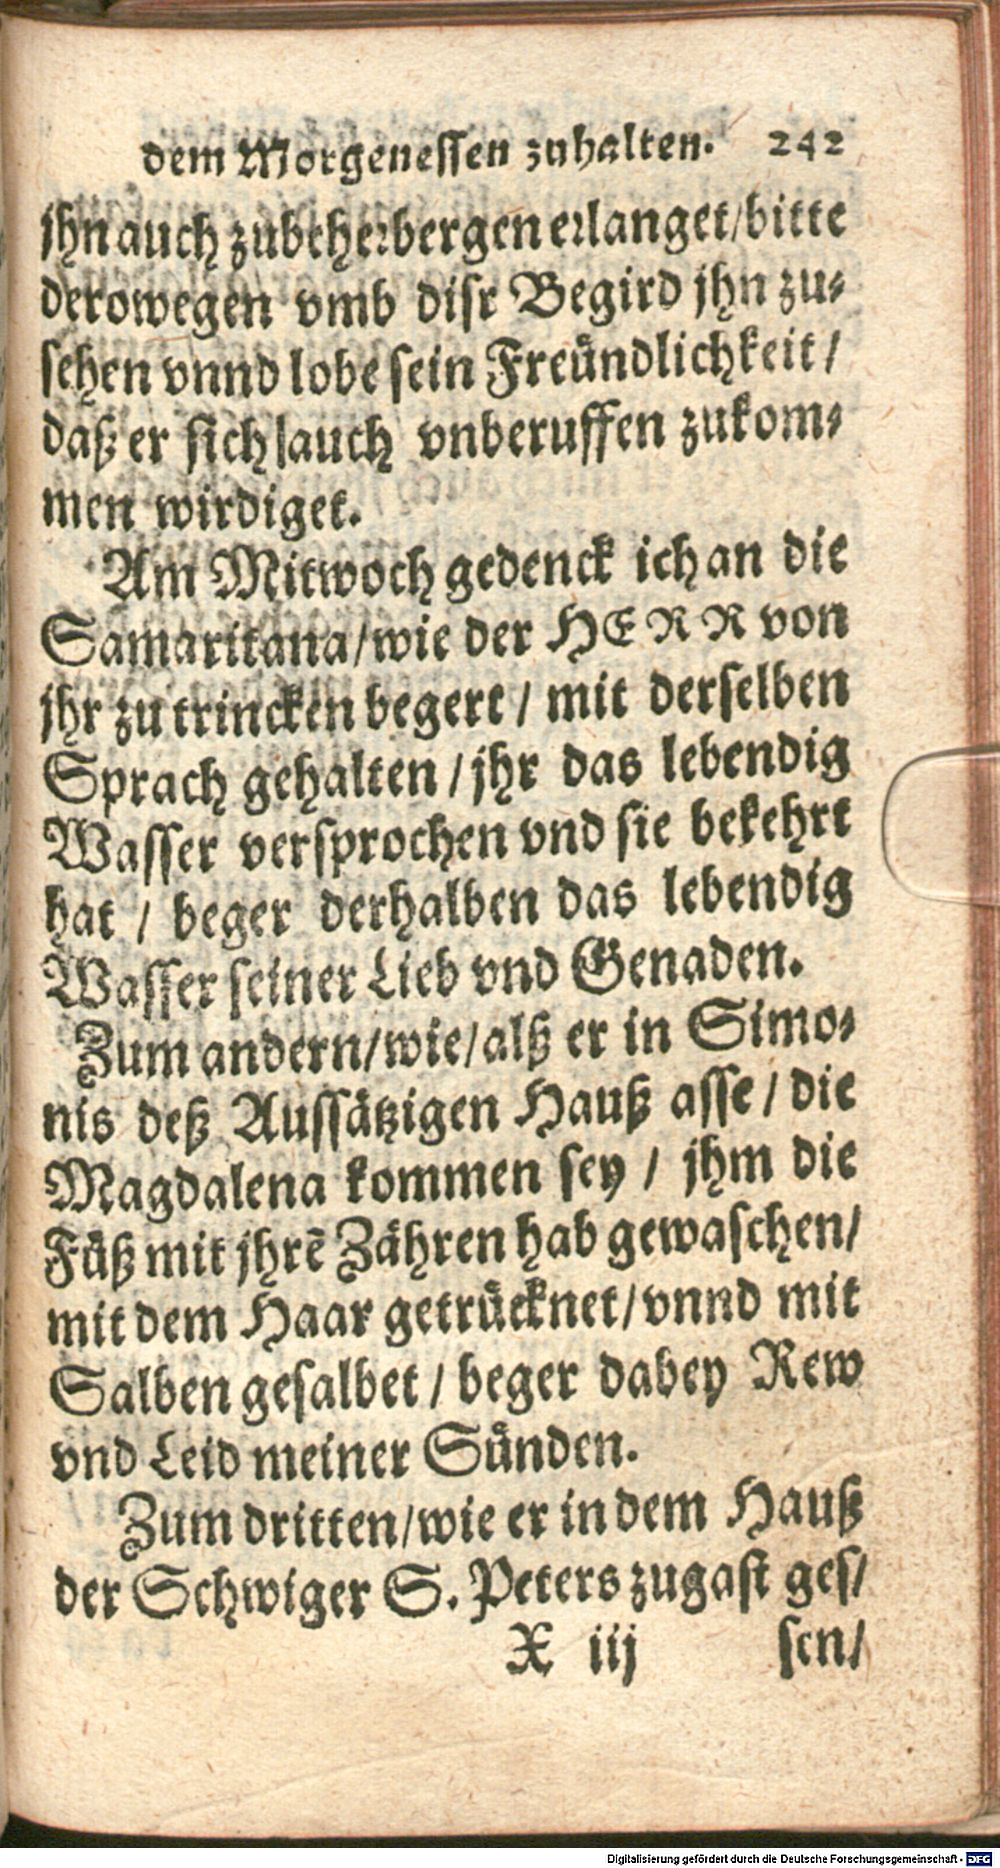 dem Morgenessen zuhalten. 242
jhn auch zubeherbergen erlanget/bitte
derowegen vmb diser Begird jhn zu⸗
sehen vnnd lobe sein Freuͤndlichkeit/
daß er sich/auch vnberuffen zukom⸗
men wirdiget.
Am Mitwoch gedenck ich an die
Samaritana/wie der HERR von
jhr zu trincken begert / mit derselben
Sprach gehalten / jhr das lebendig
Wasser versprochen vnd sie bekehrt
hat / beger derhalben das lebendig
Wasser seiner Lieb vnd Genaden.
Zum andern/wie/alß er in Simo⸗
nis deß Aussaͤtzigen Hauß asse / die
Magdalena kommen sey / jhm die
Fuͤß mit jhrẽ Zaͤhren hab gewaschen/
mit dem Haar getruͤcknet/vnnd mit
Salben gesalbet / beger dabey Rew
vnd Leid meiner Suͤnden.
Zum dritten/wie er in dem Hauß
der Schwiger S. Peters zugast ges/
X iij sen/
Digitalisierung gefördert durch die Deutsche Forschungsgemeinschaft - DFG